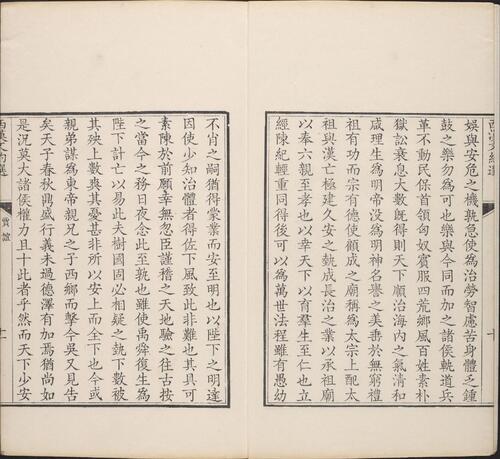 娛與安危之機孰急使爲治勞智慮苦身體乏鍾
鼓之樂勿爲可也樂與今同而加之諸侯軌道兵
革不動民保首領匈奴賓服四荒鄉風百姓素朴
獄訟衰息大數既得則天下順治海內之氣清和
咸理生爲明帝沒爲明神名譽之美垂於無窮禮
祖有功而宗有德使顧成之廟稱爲太宗上配太
祖與漢亡極建久安之埶成長治之業以承祖廟
以奉六親至孝也以幸天下以育羣生至仁也立
經陳紀輕重同得後可以爲萬世法程雖有愚幼
不肖之嗣猶得蒙業而安至明也以陛下之明達
因使少知治體者得佐下風致此非難也其具可
素陳於前願幸無忽臣謹稽之天地驗之往古按
之當今之務日夜念此至孰也雖使禹舜復生爲
陛下計亡以易此夫樹國固必相疑之埶下數被
其殃上數爽其憂甚非所以安上而全下也今或
親弟謀爲東帝親兄之子西鄉而擊今吳又見告
矣天子春秋鼎盛行義未過德澤有加焉猶尚如
是況莫大諸侯權力且十此者乎然而天下少安
賈誼